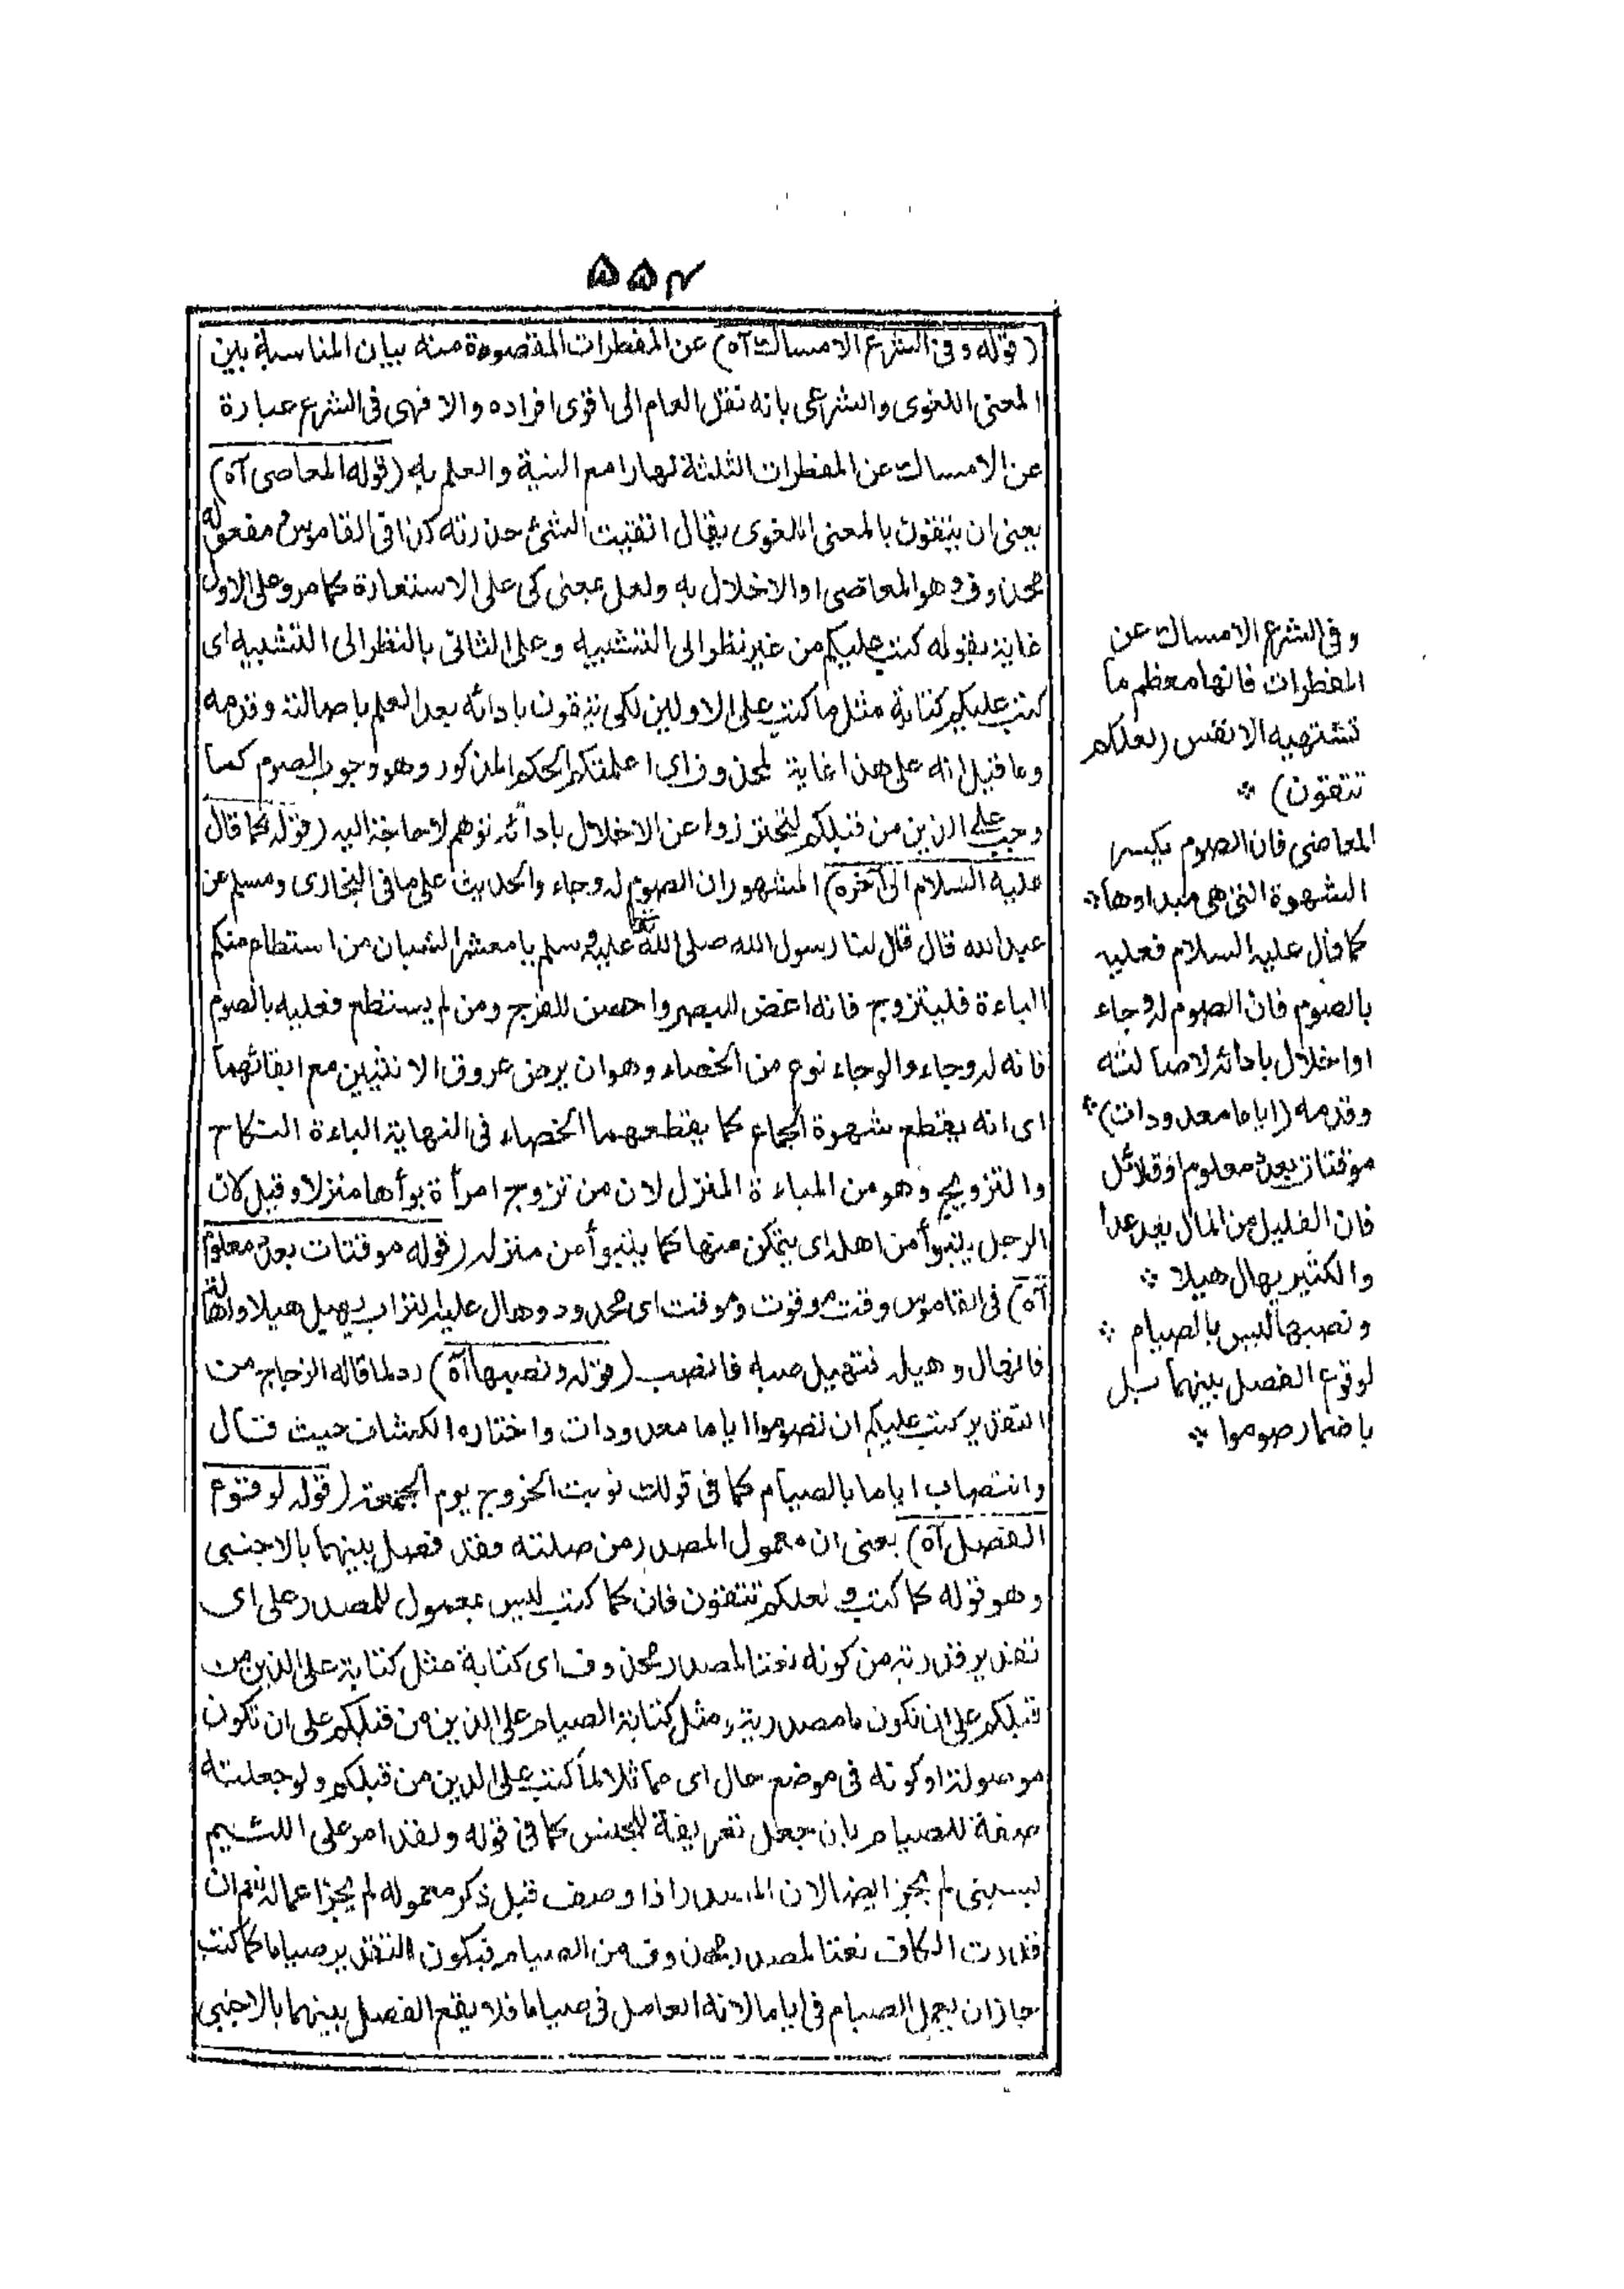 ٥٥٢
(قوله وفى الشرع الامساك آه) عن المفطرات المقصودة منه بيان المناسبة بين
المعنى اللغوى والشرعى بانه نقل العام الى اقوى افراده والا فهى فى الشرع عبارة
عن الامساك عن المفطرات الثلثة نهارا مع النية والعلم به (قوله المعاصى آه)
يعنى ان يتقون بالمعنى اللغوى يقال اتقيت الشئ حذرته كذا فى القاموس مفعوله
محذوف وهو المعاصى او الاخلال به ولعل بمعنى كى على الاستعارة كما مر وعلى الاول
غاية بقوله كتب عليكم من غير نظر الى التشبيه وعلى الثانى بالنظر الى التشبيه اى
كتب عليكم كتابة مثل ما كتب على الاولين لكى تتقون بادائه بعد العلم باصالته وقدمه
وما قيل انه على هذا غاية لمحذوف اى اعلمتكم الحكم المذكور وهو وجوب الصوم كما
وجب على الذين من قبلكم لتحترزوا عن الاخلال بادائه توهم لا حاجة اليه (قوله كما قال
عليه السلام الى آخره) المشهور ان الصوم له وجاء والحديث على ما فى البخارى ومسلم عن
عبد الله قال قال لنا رسول الله صلى الله عليه وسلم يا معشر الشبان من استطاع منكم
الباءة فليتزوج فانه اغض للبصر واحصن للفرج ومن لم يستطع فعليه بالصوم
فانه له وجاء والوجاء نوع من الخصاء وهو ان يرض عروق الانثيين مع ابقائهما
اى انه يقطع شهوة الجماع كما يقطعهما الخصاء فى النهاية الباءة النكاح
والتزويج وهو من المباءة المنزل لان من تزوج امرأة بوأها منزلا وقيل لان
الرجل يتبوأ من اهله اى يتمكن منها كما يتبوأ من منزله (قوله موقتات بعدد معلوم
آه) فى القاموس وقت موقوت وموقت اى محدود وهال عليه التراب يهيل هيلا واهاله
فانهال وهيله فتهيل صبه فانصب (قوله ونصبها آه) رد لما قاله الزجاج من
التقدير كتب عليكم ان تصوموا اياما معدودات واختاره الكشاف حيث قال
وانتصاب اياما بالصيام كما فى قولك نويت الخروج يوم الجمعة (قوله لوقوع
الفصل آه) يعنى ان معمول المصدر من صلته وقد فصل بينهما بالاجنبى
وهو قوله كما كتب ولعلكم تتقون فان كما كتب ليس بمعمول للمصدر على اى
تقدير قدرته من كونه نعتا لمصدر محذوف اى كتابة مثل كتابة على الذين من
قبلكم على ان تكون ما مصدرية ومثل كتابة الصيام على الذين من قبلكم على ان تكون
موصولة او كونه فى موضع حال اى مماثلا لما كتب على الذين من قبلكم ولو جعلته
صفة للصيام بان جعل تعريفه للجنس كما فى قوله ولقد امر على اللئيم
يسبنى لم يجز ايضا لان المصدر اذا وصف قبل ذكر معموله لم يجز اعماله نعم ان
قدرت الكاف نعتا لمصدر محذوف من الصيام فيكون التقدير صياما كما كتب
جاز ان يعمل الصيام فى اياما لانه العامل فى صياما فلا يقع الفصل بينهما بالاجنبى
وفى الشرع الامساك عن
المفطرات فانها معظم ما
تشتهيه الانفس (لعلكم
تتقون) *
المعاصى فان الصوم يكسر
الشهوة التى هى مبدأوها *
كما قال عليه السلام فعليه
بالصوم فان الصوم له وجاء
او اخلال بادائه لاصالته
وقدمه (اياما معدودات) *
موقتات بعدد معلوم او قلائل
فان القليل من المال يعد عدا
والكثير يهال هيلا *
ونصبها ليس بالصيام *
لوقوع الفصل بينهما بل
باضمار صوموا *